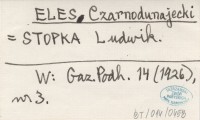 ELES, Czarnodunajecki
= STOPKA Ludwik.
W: Gaz. Podh. 14 (1926),
nr 3.